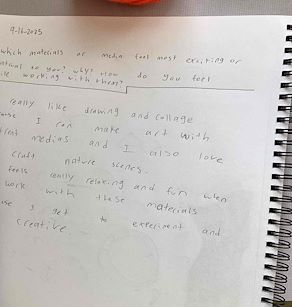 9-16-2025
which materials or media feel most exciting or
to you? why? How do you feel
working with them?
really like drawing and collage
I can make art with
medias and I also love
craft nature scenes.
feels really relaxing and fun when
work with these materials
I get to experiment and
creative